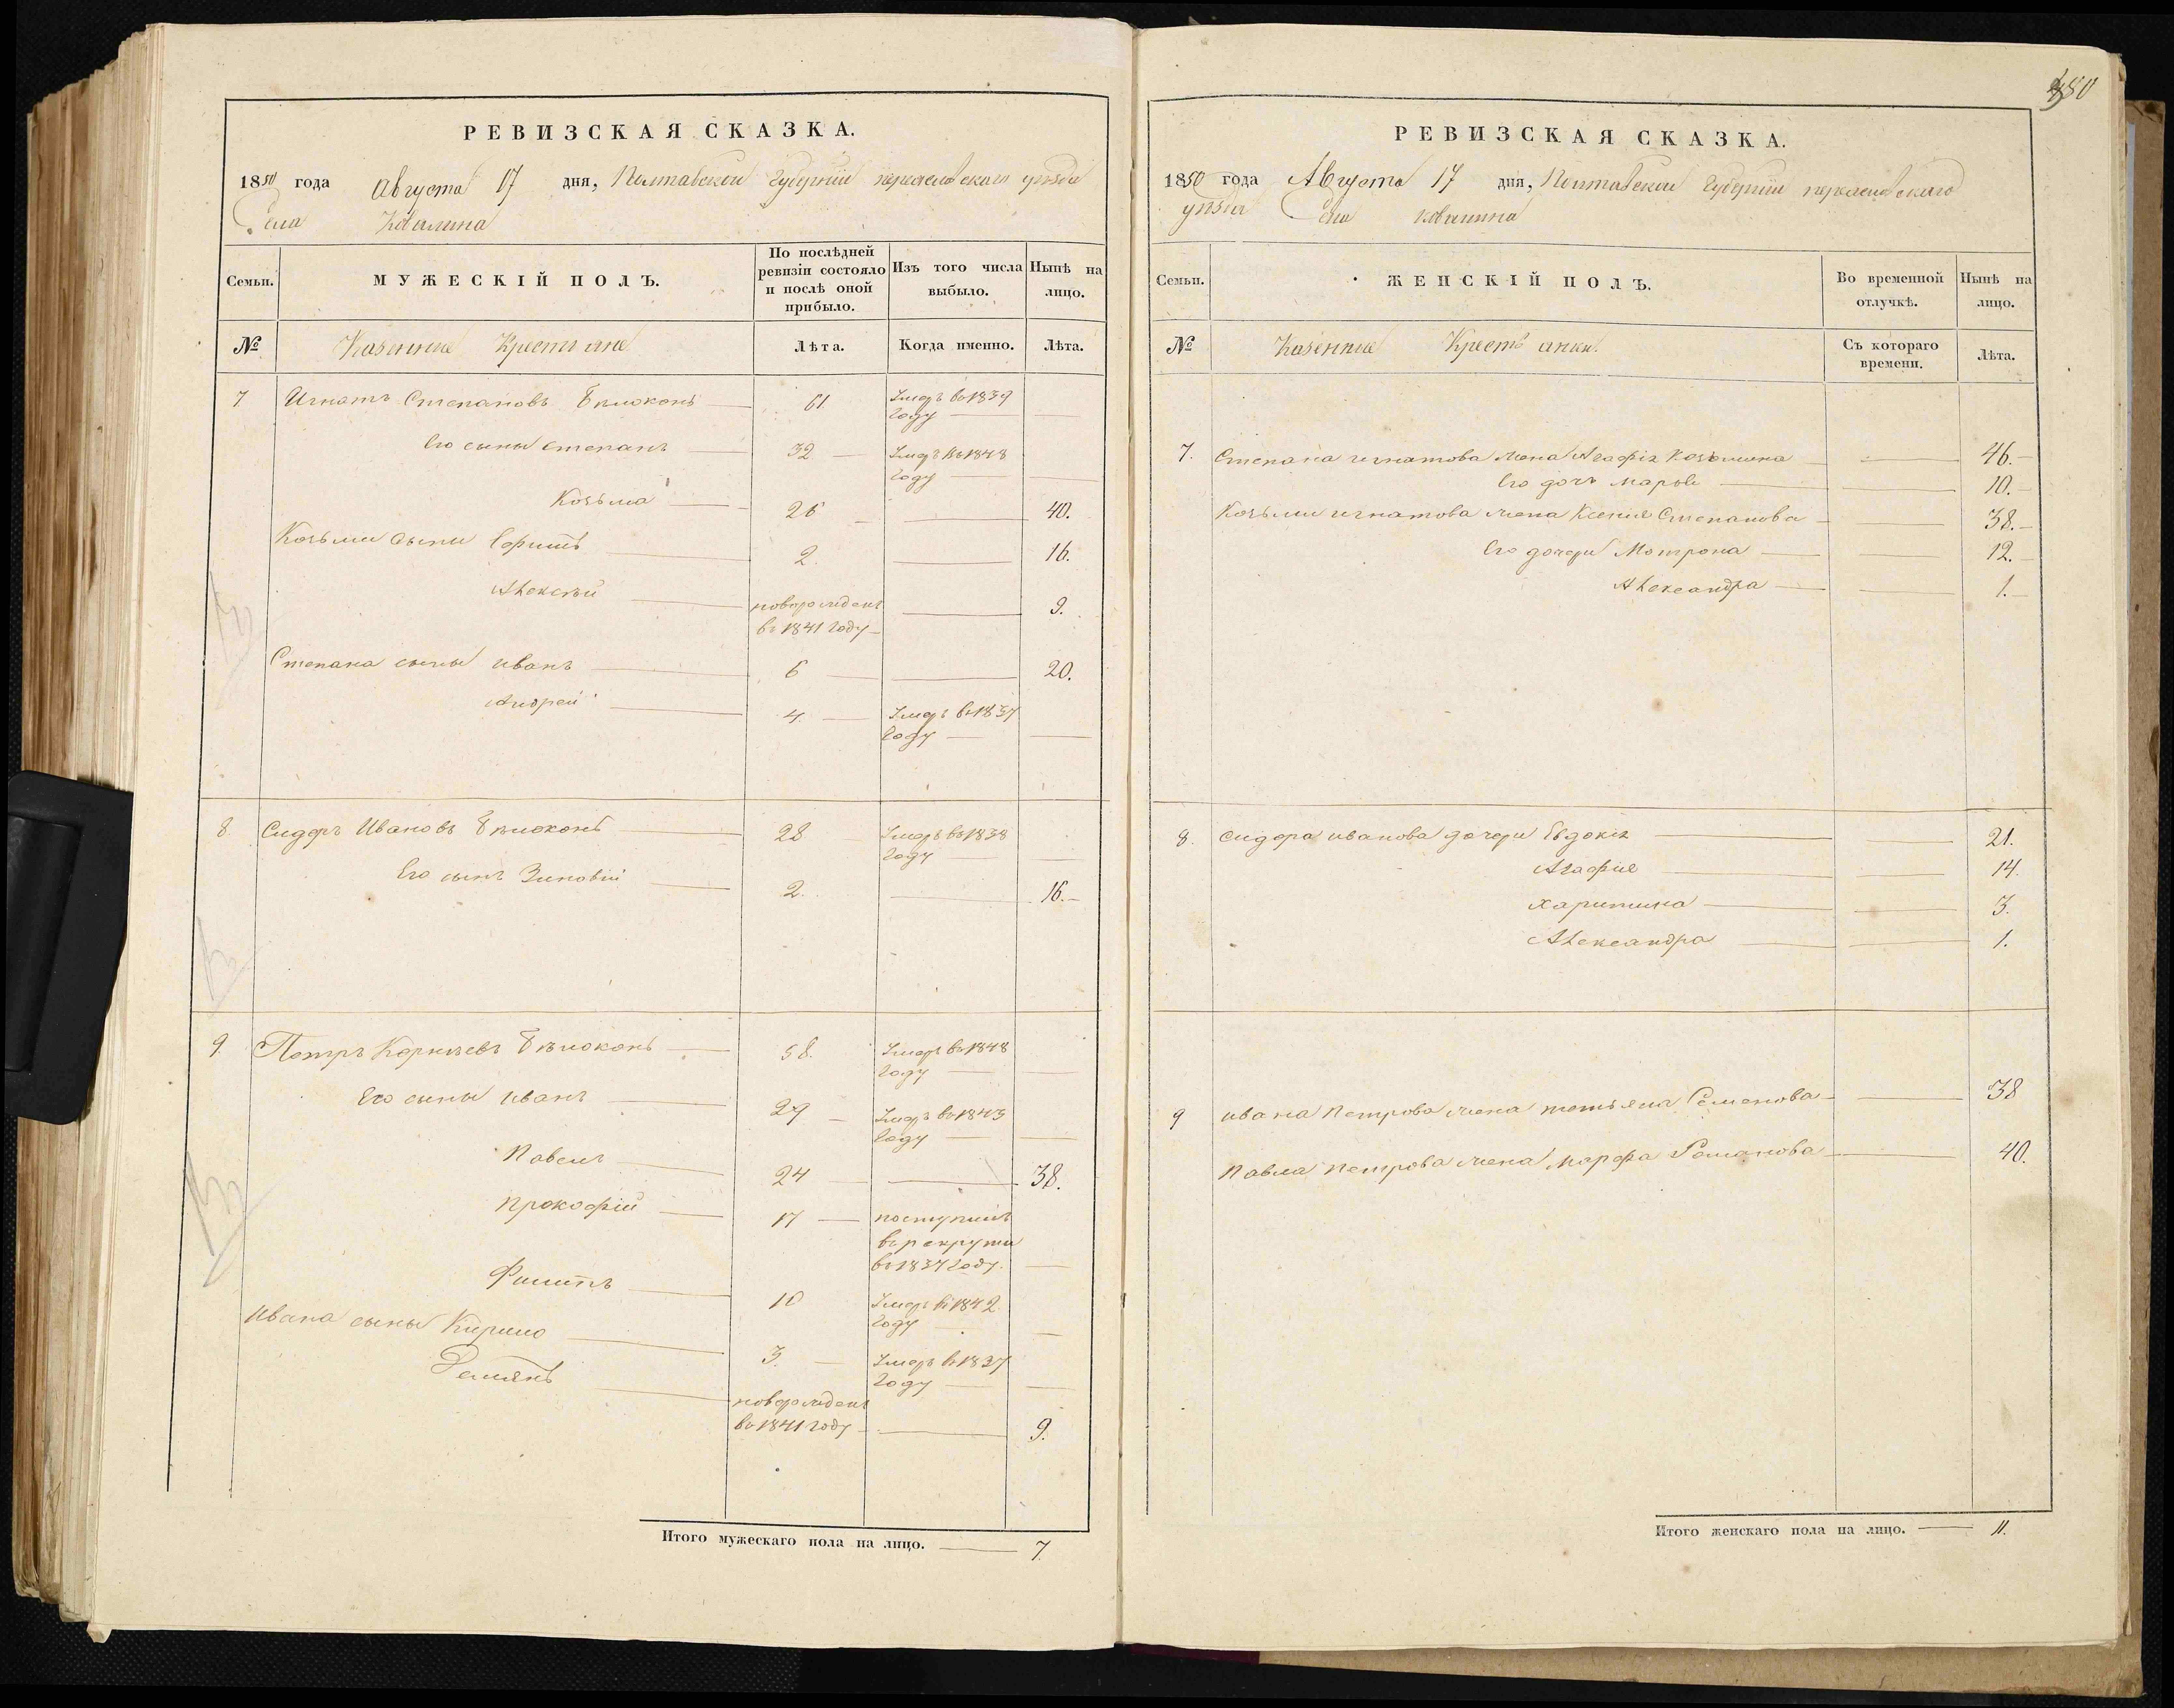 РЕВИЗСКАЯ СКАЗКА.
1850 года Августа 17 дня, Полтавской Губернии переяславскаго уезда
Села Ковалина
Семьи.
МУЖЕСКІЙ ПОЛЪ.
По послѣдней ревизіи состояло и послѣ оной прибыло.
Изъ того числа выбыло.
Нынѣ на лицо.
№
Казенные Крестьяне
Лѣта.
Когда именно.
Лѣта.
7 Игнатъ Степановъ Бѣлоконь 61 Умеръ въ 1839
году
Его сыны степанъ 32 Умеръ въ 1848
году
Козьма 26 40.
Козьмы сыны 2. 16.
Алексѣй новорожденъ 9.
въ 1841 году
Степана сыны иванъ 6 20.
Андрей 4. Умеръ въ 1837
году
8. Сидоръ Ивановъ Бѣлоконь 28 Умеръ въ 1838
году
Его сынъ Зиновій 2. 16.
9. Петръ Корнѣевъ Бѣлоконь 58. Умеръ въ 1848
году
Его сыны иванъ 29 Умеръ въ 1843
году
Павелъ 24 38.
Прокофій 17 поступилъ
въ рекруты
въ 1837 году.
Филипъ 10 Умеръ въ 1842
году
Ивана сыны Кирило 3. Умеръ въ 1837
году
новорожденъ
въ 1841 году 9.
Итого мужескаго пола на лицо. 7.
РЕВИЗСКАЯ СКАЗКА.
1850 года Августа 17 дня, Полтавской Губерніи переяславскаго
уѣзда Села Ковалина
Семьи.
ЖЕНСКІЙ ПОЛЪ.
Во временной отлучкѣ.
Нынѣ на лицо.
№
Казенные Крестьянки.
Съ котораго времени.
Лѣта.
7. Степана игнатова жена Агафія Козьмина 46.
Его дочь марья 10.
Козьмы игнатова жена Ксенія Степанова 38.
Его дочери Мотрона 12.
Александра 1.
8. Сидора иванова дочери Евдокія 21.
Агафія 14.
харитина 3.
Александра 1.
9 ивана Петрова жена татьяна Семенова 38
Павла Петрова жена марфа Романова 40.
Итого женскаго пола на лицо. 11.